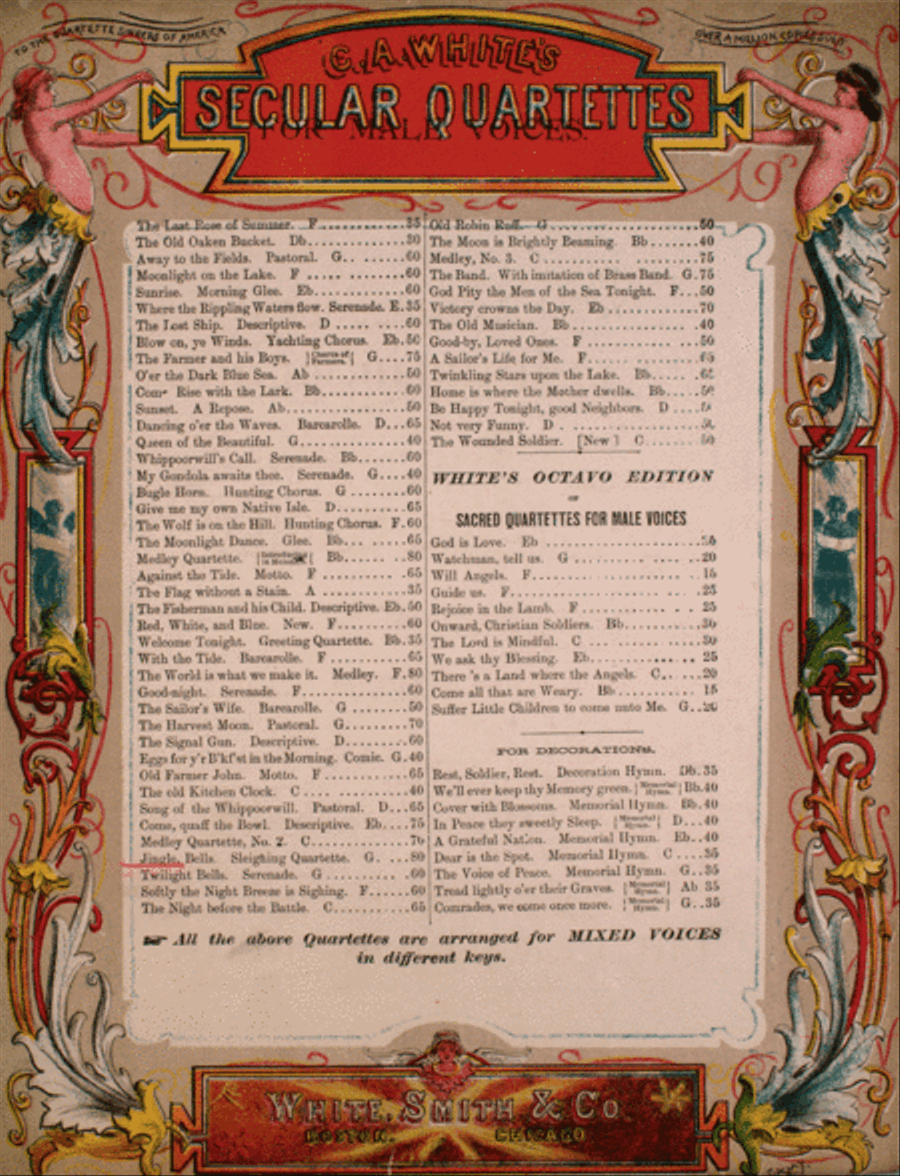 TO THE QUARTETTE SINGERS OF AMERICA
OVER A MILLION COPIES SOLD
C. A. WHITE'S
SECULAR QUARTETTES
FOR MALE VOICES.
The Last Rose of Summer. F..............35
The Old Oaken Bucket. Db..............30
Away to the Fields. Pastoral. G.. ......60
Moonlight on the Lake. F ..... ........60
Sunrise. Morning Glee. Eb..............60
Where the Rippling Waters flow. Serenade. E.35
The Lost Ship. Descriptive. D ..... ....60
Blow on, ye Winds. Yachting Chorus. Eb.50
The Farmer and his Boys. [Chorus of Farmers.] G....75
O'er the Dark Blue Sea. Ab ............50
Come Rise with the Lark. Bb............60
Sunset. A Repose. Ab..................50
Dancing o'er the Waves. Barcarolle. D...65
Queen of the Beautiful. G..............40
Whippoorwill's Call. Serenade. Bb.......60
My Gondola awaits thee. Serenade. G....40
Bugle Horn. Hunting Chorus. G ........60
Give me my own Native Isle. D..........65
The Wolf is on the Hill. Hunting Chorus. F.60
The Moonlight Dance. Glee. Bb... .....65
Medley Quartette. Bb.........80
Against the Tide. Motto. F ........... .65
The Flag without a Stain. A ...........35
The Fisherman and his Child. Descriptive. Eb.50
Red, White, and Blue. New. F..........60
Welcome Tonight. Greeting Quartette. Bb.35
With the Tide. Barcarolle. F ...........65
The World is what we make it. Medley. F.80
Good-night. Serenade. F...............60
The Sailor's Wife. Barcarolle. G ........50
The Harvest Moon. Pastoral. G.........70
The Signal Gun. Descriptive. D.........60
Eggs for y'r B'kf'st in the Morning. Comic. G.40
Old Farmer John. Motto. F ............65
The old Kitchen Clock. C .... .........40
Song of the Whippoorwill. Pastoral. D...65
Come, quaff the Bowl. Descriptive. Eb....75
Medley Quartette, No. 2. C.............70
Jingle, Bells. Sleighing Quartette. G. ...80
Twilight Bells. Serenade. G ............60
Softly the Night Breeze is Sighing. F......60
The Night before the Battle. C..........65
Old Robin Ruff. G ....................50
The Moon is Brightly Beaming. Bb......40
Medley, No. 3. C .....................75
The Band. With imitation of Brass Band. G.75
God Pity the Men of the Sea Tonight. F...50
Victory crowns the Day. Eb ............70
The Old Musician. Bb..................40
Good-by, Loved Ones. F ...............50
A Sailor's Life for Me. F................65
Twinkling Stars upon the Lake. Bb......65
Home is where the Mother dwells. Bb....50
Be Happy Tonight, good Neighbors. D ....
Not very Funny. D . ..................
The Wounded Soldier. [New] C ........50
WHITE'S OCTAVO EDITION
OF
SACRED QUARTETTES FOR MALE VOICES
God is Love. Eb ......................
Watchman, tell us. G ..................20
Will Angels. F.........................15
Guide us. F...........................25
Rejoice in the Lamb. F ................25
Onward, Christian Soldiers. Bb..........30
The Lord is Mindful. C ................30
We ask thy Blessing. Eb................25
There 's a Land where the Angels. C......20
Come all that are Weary. Bb............15
Suffer Little Children to come unto Me. G..20
FOR DECORATIONS.
Rest, Soldier, Rest. Decoration Hymn. Db.35
We'll ever keep thy Memory green. [Memorial Hymn.] Bb.40
Cover with Blossoms. Memorial Hymn. Bb.40
In Peace they sweetly Sleep. [Memorial Hymn.] D...40
A Grateful Nation. Memorial Hymn. Eb..40
Dear is the Spot. Memorial Hymn. C ....35
The Voice of Peace. Memorial Hymn. G..35
Tread lightly o'er their Graves. [Memorial Hymn.] Ab 35
Comrades, we come once more. [Memorial Hymn.] G..35
☞ All the above Quartettes are arranged for MIXED VOICES
in different keys.
WHITE, SMITH & CO
BOSTON. CHICAGO